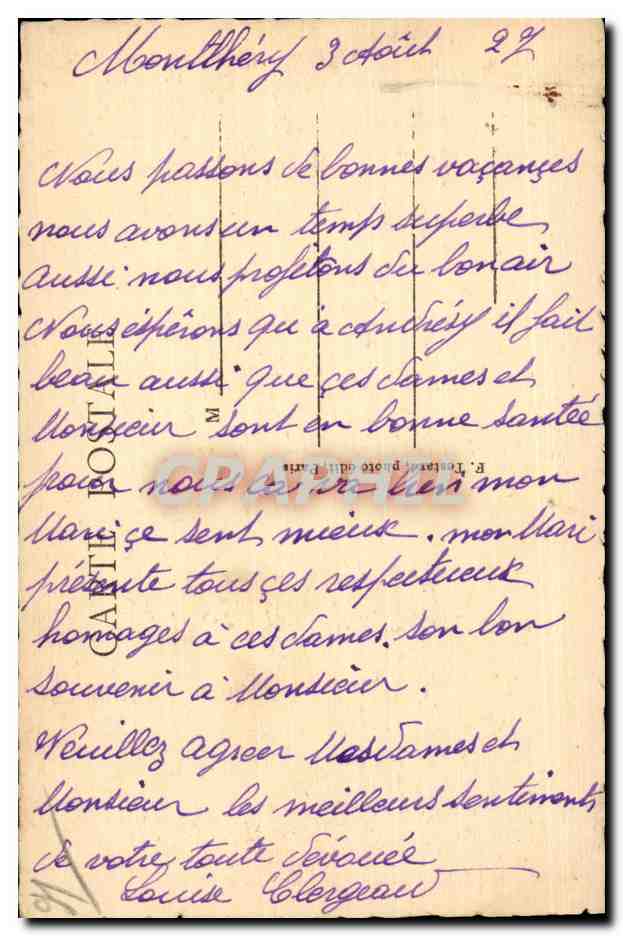 Montlhéry 3 Août 27
Nous passons de bonnes vaçançes
nous avons un temps superbe
aussi nous profitons du bon air
Nous éspérons qu'à Andrésy il fait
beau aussi que çes dames et
Monsieur sont en bonne santée
pour nous ca va bien mon
Mari çe sent mieux. mon Mari
présente tous çes respectueux
homages à ces dames. son bon
souvenir à Monsieur.
Veuillez agreer Mesdames et
Monsieur les meilleurs sentiments
de votre toute dévouée
Louise Clergeau
CARTE POSTALE
M
F. Testard, photo édit, Paris
CPAPHIL